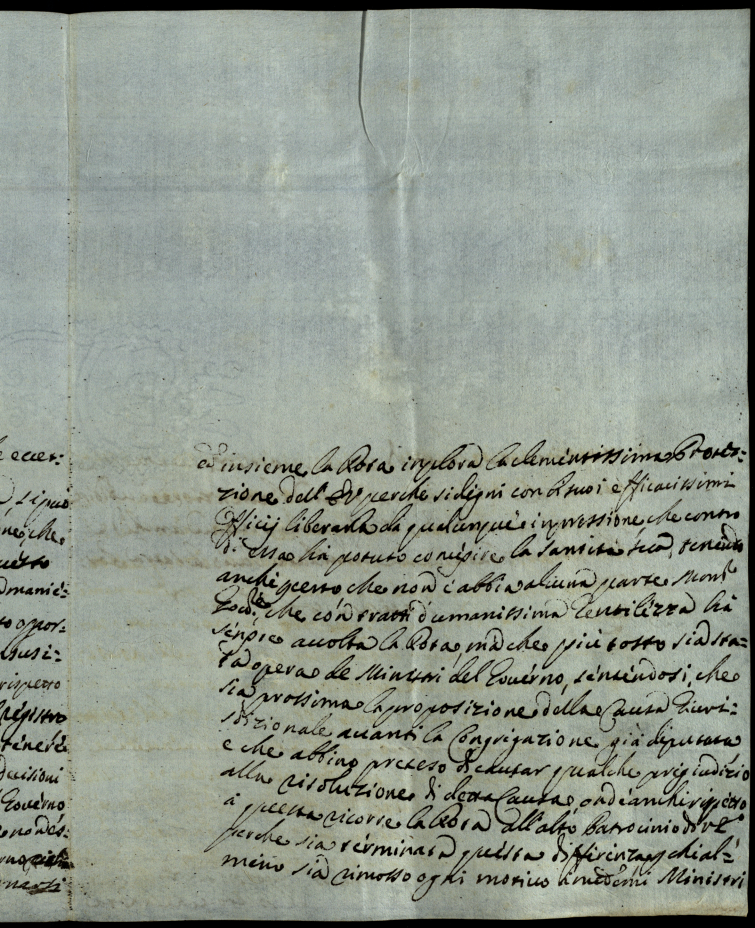 e eccet:
si può
ne, che
questo
d maniè:
to oppor:
susi:
rispetto
Registro
tenere
Decisioni
Governo
e no des:
ed' insieme la Rota implora la clementissima Protet:
zione dell' EV perche si digni con li suoi efficacissimi
Officij liberarla da qualunque impressione, che contro
di essa hà potuto concepire la Santità Sua, tenendo
anche certo che non c' abbia alcuna parte Monsr
Govre, che con tratti d' umanissima Gentilezza hà
sempre accolta la Rota, mà che più tosto sia sta=
ta opera de Ministri del Governo, sentendosi, che
sia prossima la proposizione della Causa Giuri=
sdizionale avanti la Congregazione già diputata
e che abbino preteso di causar qualche pregiudizio
alla risoluzione di detta Causa, onde anche rispetto
à questa ricorre la Rota all' alto Patrocinio di VE
perche sia terminata questa differenza, ch' al=
meno sia rimosso ogni motivo à medemi Ministri